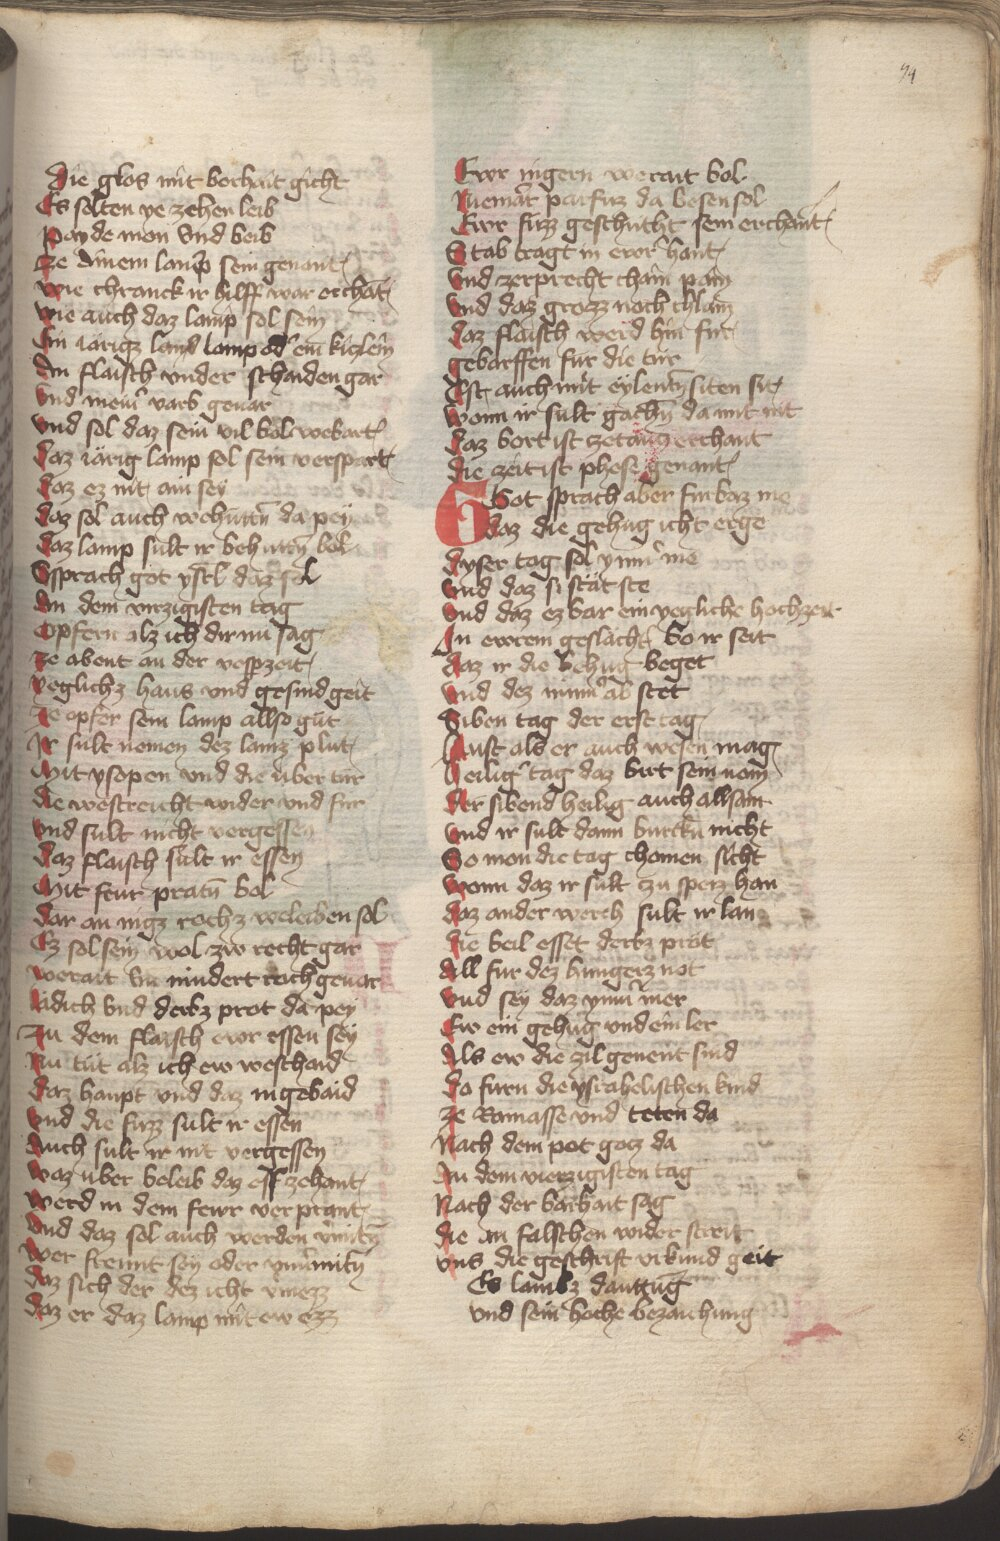 94
Die glos mit bochait gicht
Es solten ye zehen leib
Payde mon vnd beib
Ze ainem lamp sein genant
Wie chranck ir hilff war erchāt
Wie auch daz lamp sol sein
Ein iärigz lamp od' ein kiczlein
An flaisch vnder schaiden gar
Vnd varb geuar
Vnd sol daz sein vil bol webart
Daz iärig lamp sol sein verspart
Daz ez nit ain sey
Daz sol auch da pey
Daz lamp sult ir behuten bol
Sprach got ysrl daz sol
An dem virzigisten tag
Opfern alz ich dir nu sag
Ze abent an der vesperzeit
Yeglichz haus vnd gesind geit
Ze opfer sein lamp allso gut
Ir sult nemen dez lamz plut
Mit ysopen vnd die uber tur
Die westreicht wider vnd fur
Vnd sult nicht vergessen
Daz flaisch sult ir essen
Mit feur praten bol
Dar an nigz rochz weleiben sol
Ez sol sein wol zw recht gar
Werait vn nindert roch geuar
Lidich vnd derbz prot da pey
Zu dem flaisch ewr essen sey
Nu tüt alz ich ew weschaid
Daz haupt vnd daz ingebaid
Vnd die fuzz sult ir essen
Auch sult ir nit vergessen
Waz uber beleib daz ess zehant
Werd in dem fewr ver prant
Vnd daz sol auch werden
Wer fremt sey oder
Daz sich der dez icht
Daz er daz lamp mit ew ezz
Ewr ingern werait bol
Niemāt parfuz da besen sol
Ewr fuzz geschucht sein erchant
Stab tragt in ewr hant
Vnd zerprecht chain pain
Vnd daz grozz noch chlain
Daz flaisch werd hin fur
Gebarffen fur die tür
Ist auch mit eylenten siten sit
Wonn ir sult gachen da mit nit
Daz bort ist erchant
Die zeit ist phese genant
Got sprach aber furbaz me
Daz die gehug icht erge
Dyser tag sol ymm' me
Vnd daz si stät ste
Vnd daz ez bar ein yegliche hochzeit
In ewrem geslächt bo ir seit
Daz ir die behug beget
Vnd dez nimm' ab stet
Siben tag der erst tag
Lust als er auch wesen mag
Heilig' tag daz birt sein nam
Der sibend heilig auch allsam
Vnd ir sult dann burcken nicht
So mon die tag chomen sicht
Wonn daz ir sult zu speiz han
Daz ander werch sult ir lan
Die beil esset derbz prot
All fur dez hungerz not
Vnd sey daz ymm' mer
Ew ein gehug vnd ein ler
Als ew die zil genent sind
Do furn die ysrahelischen kind
Ze Ramasse vnd teten da
Nach dem pot gotz da
An dem vierzigisten tag
Nach der barhait sag
Die an falschen wider streit
Vns die geschrift vrkund geit
Es lambz dauttüg
Vnd sein hoche bezaichung